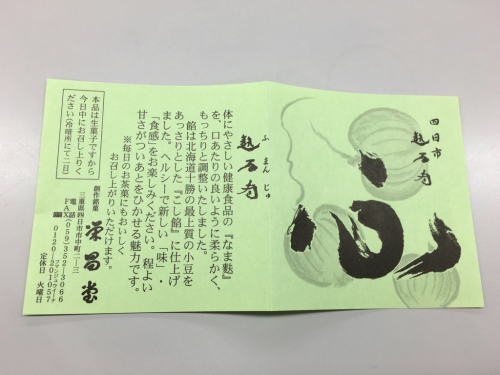 四日市
ふまんじゅ
体にやさしい健康食品の『なま麩』
を、口あたりの良いように柔らかく、
もっちりと調整いたしました。
餡は北海道十勝の最上質の小豆を
あっさりとした『こし餡』に仕上げ
ました。ヘルシーで新しい「味」・
「食感」をお楽しみください。程よい
甘さがついあとをひかせる魅力です。
※毎日のお茶菓にもおいしく
お召し上がりいただけます。
本品は生菓子ですから
今日中にお召し上りく
ださい(冷暗所にて二日)
創作銘菓 栄昌堂
三重県四日市市中町二ー三
電話 (059)352ー3066
FAX 0120ー201057
定休日 火曜日